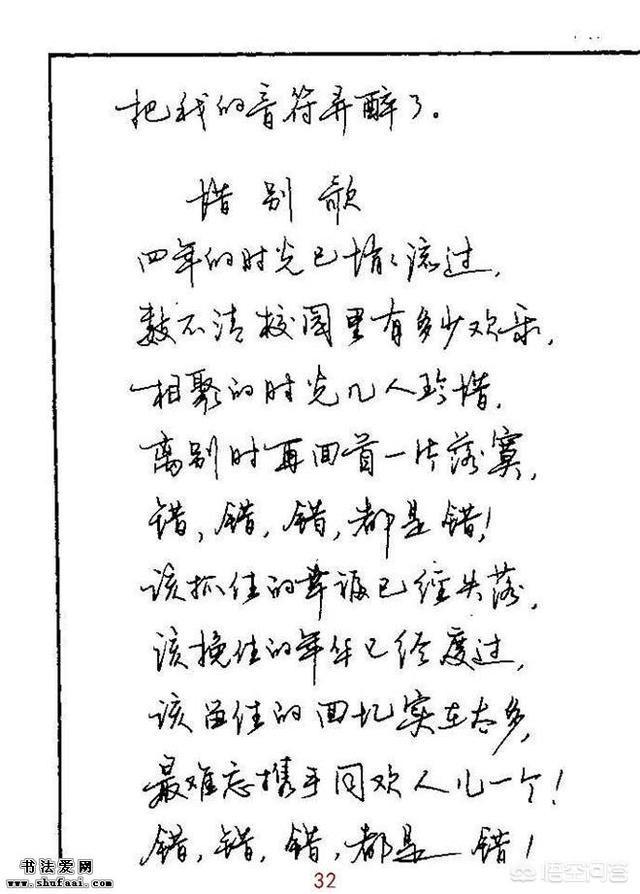 把我的音符弄醉了。
惜别歌
四年的时光已悄悄流过,
数不清校园里有多少欢乐,
相聚的时光几人珍惜,
离别时再回首一片落寞,
错,错,错,都是错!
该抓住的幸福已经失落,
该挽住的年华已经度过,
该留住的回忆实在太多,
最难忘携手同欢人儿一个!
错,错,错,都是错!
书法爱网
www.shufaai.com
32
悟空问答